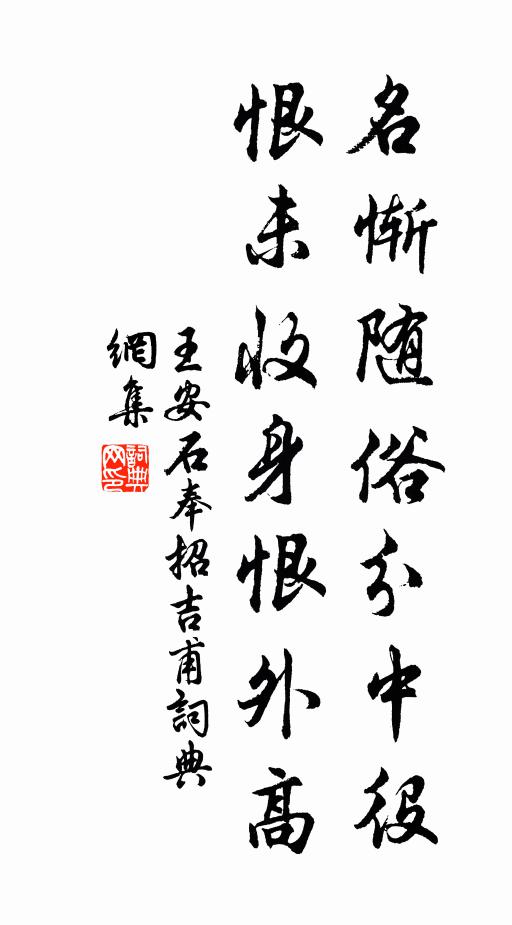 名惭随俗分中役
恨未收身恨外高
王安石奉招吉甫詞典
網集
詞典网印